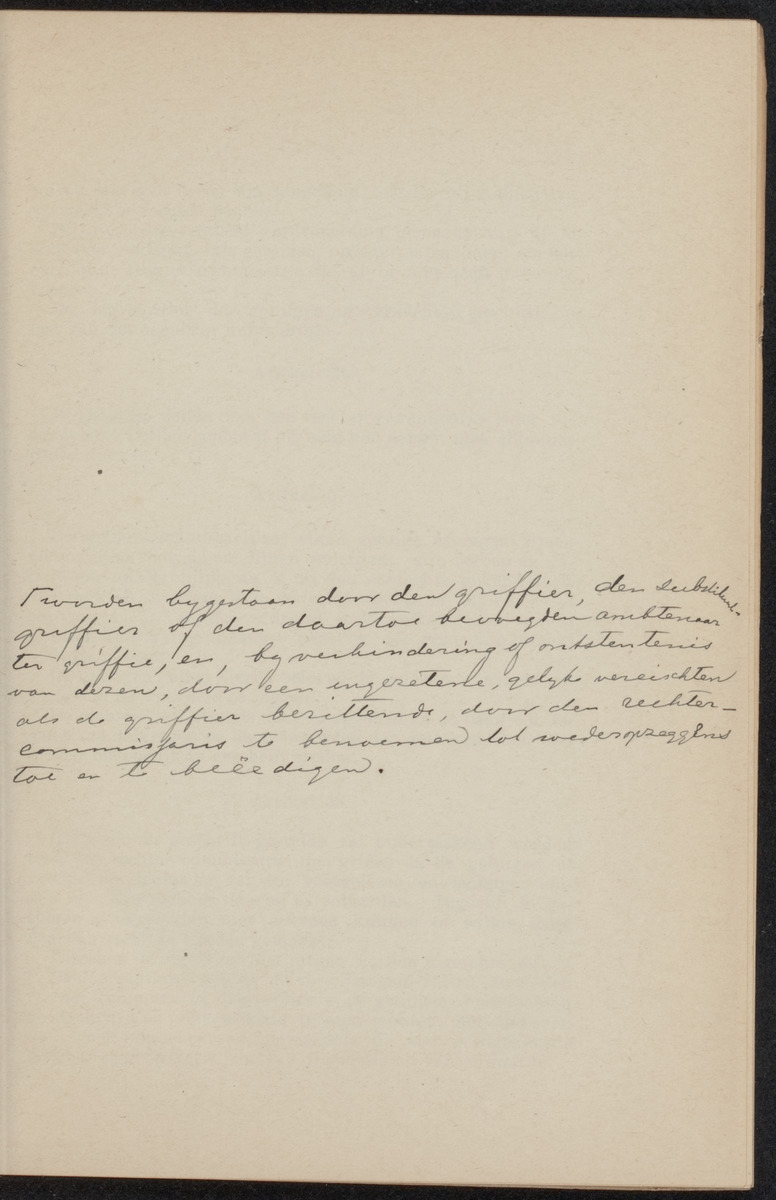 ⌈ worden bygestaan door den griffier, den substituut-
griffier of den daartoe bevoegden ambtenaar
ter griffie, en, by verhindering of ontstentenis
van dezen, door een ingezetene, gelyke vereischten
als de griffier bezittende, door den rechter-
commissaris te benoemen tot wederopzeggens
toe en te beëedigen.